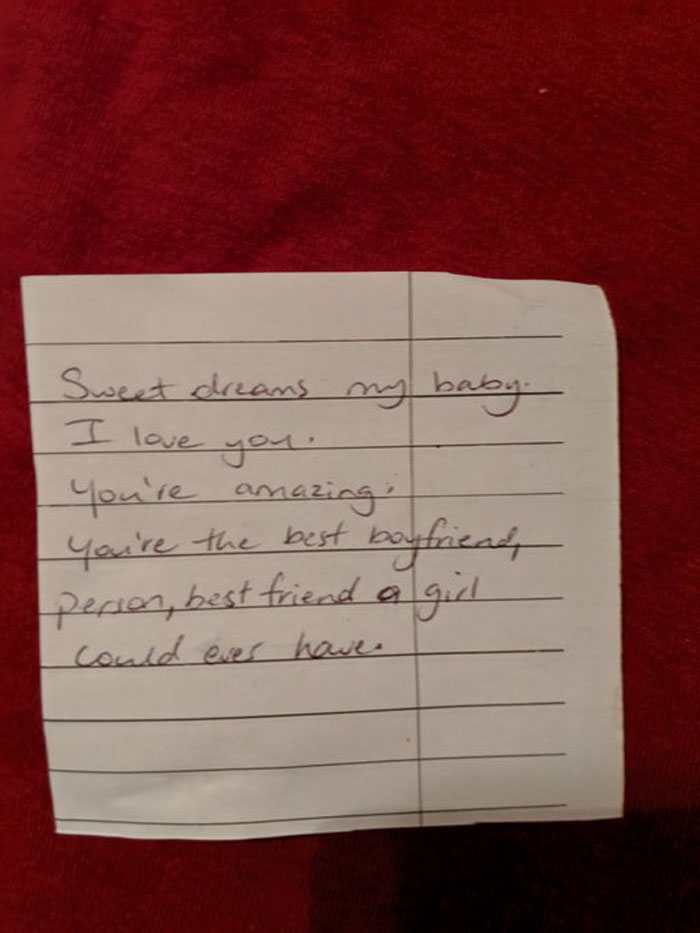 Sweet dreams my baby.
I love you.
You're amazing.
You're the best boyfriend,
person, best friend a girl
could ever have.